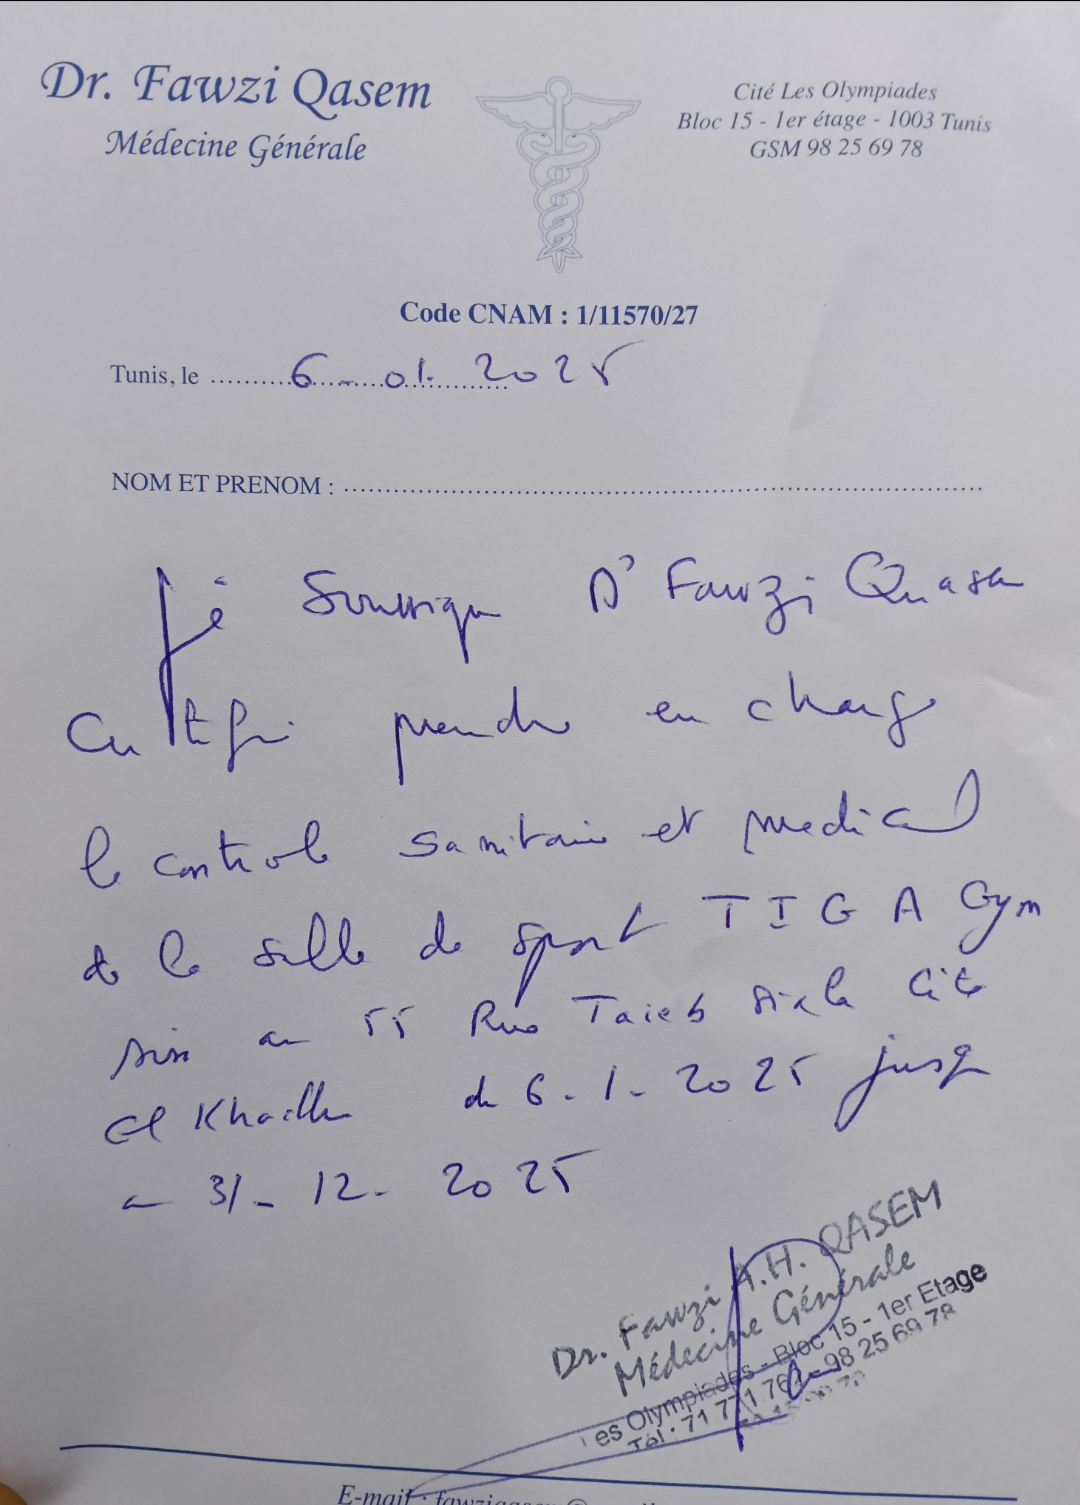 Dr. Fawzi Qasem
Médecine Générale
Cité Les Olympiades
Bloc 15 - 1er étage - 1003 Tunis
GSM 98 25 69 78
Code CNAM : 1/11570/27
Tunis, le 6 - 01. 2025
NOM ET PRENOM :
Je Soussigné Dr Fawzi Quasem
Certifie prendre en charge
le controle sanitaire et medical
de la salle de sport TIGA Gym
sise au 55 Rue Taieb Cité
el Khadhra du 6 - 1 - 2025 jusq
au 31 - 12 - 2025
Dr. Fawzi A.H. QASEM
Médecine Générale
Les Olympiades - Bloc 15 - 1er Etage
Tél : 71 771 76 - 98 25 69 78
E-mail :